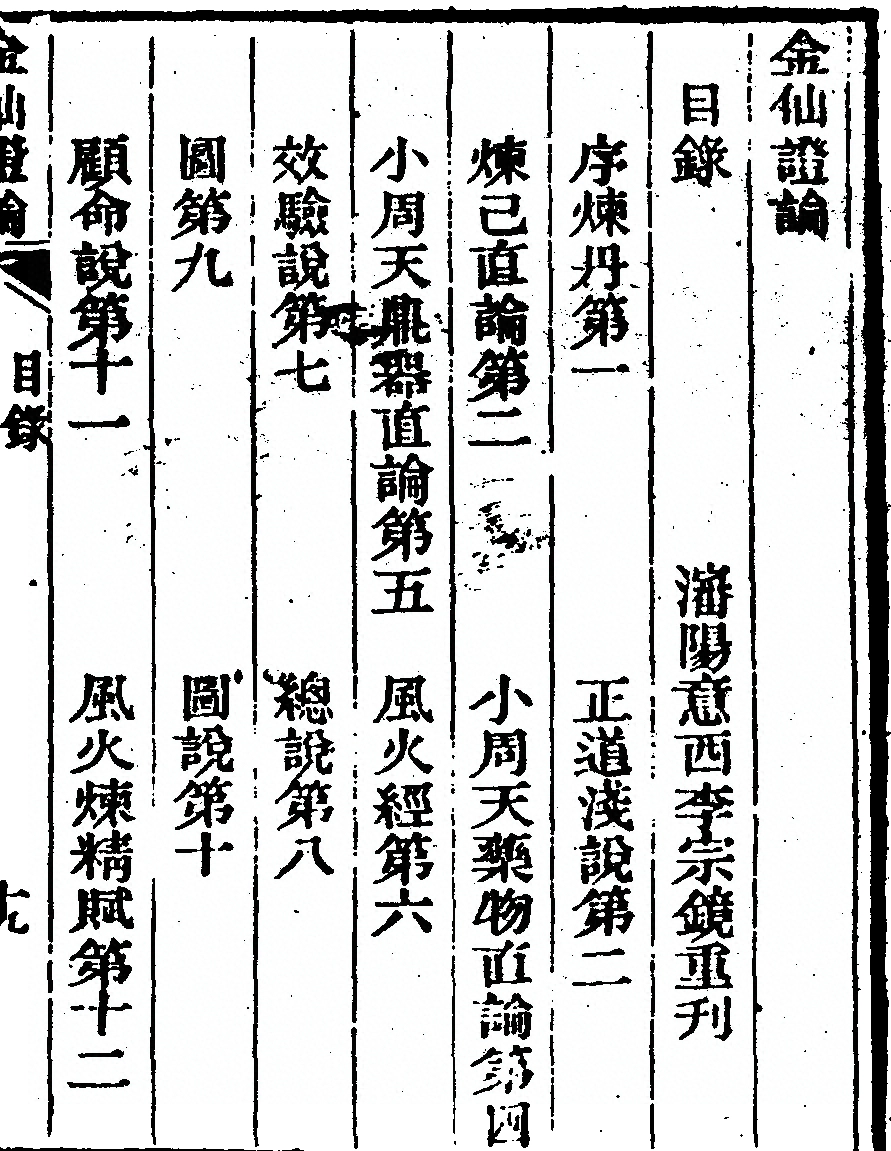 金仙證論
目錄 瀋陽意西李宗鏡重刊
序煉丹第一 正道淺說第二
煉己直論第二 小周天藥物直論第四
小周天鼎器直論第五 風火經第六
效驗說第七 總說第八
圖第九 圖說第十
顧命說第十一 風火煉精賦第十二
金仙證論 目錄 十九